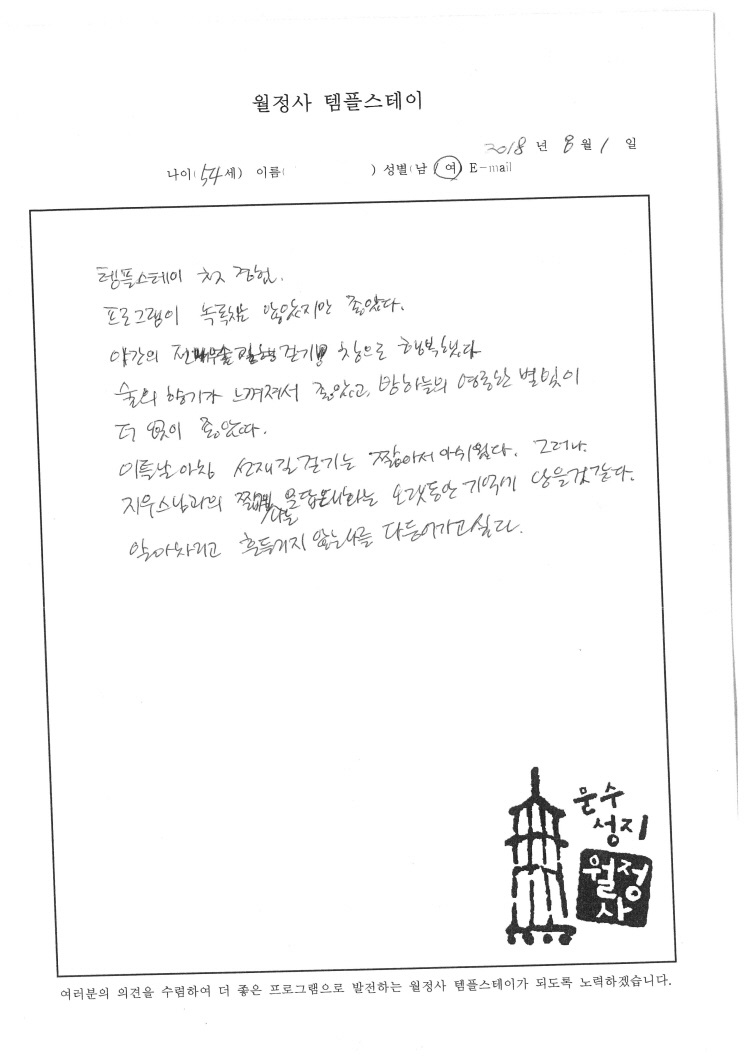 월정사 템플스테이
2018 년 8 월 1 일
나이(54세) 이름( ) 성별(남/여) E-mail
템플스테이 첫 경험.
프로그램이 녹록치 않았지만 좋았다.
약간의 걷기 참으로 행복했다
숲의 향기가 느껴져서 좋았고, 밤하늘의 영롱한 별빛이
더 없이 좋았다.
이튿날 아침 선재길 걷기는 짧아서 아쉬웠다. 그러나.
지우스님과의 오랫동안 기억에 남을것 같다.
알아차리고 흔들리지 않는 나를 다듬어가고싶다.
문수
성지
월정
사
여러분의 의견을 수렴하여 더 좋은 프로그램으로 발전하는 월정사 템플스테이가 되도록 노력하겠습니다.